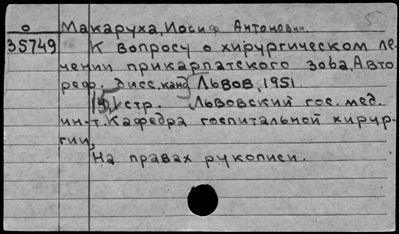 о Макаруха, Иосиф Антонович.
35749 К вопросу о хирургическом ле-
чении прикарпатского зоба. Авто
реф. дисс. канд. Львов, 1951.
15 стр. Львовский гос. мед.
ин-т. Кафедра госпитальной хирур-
гии,
На правах рукописи.